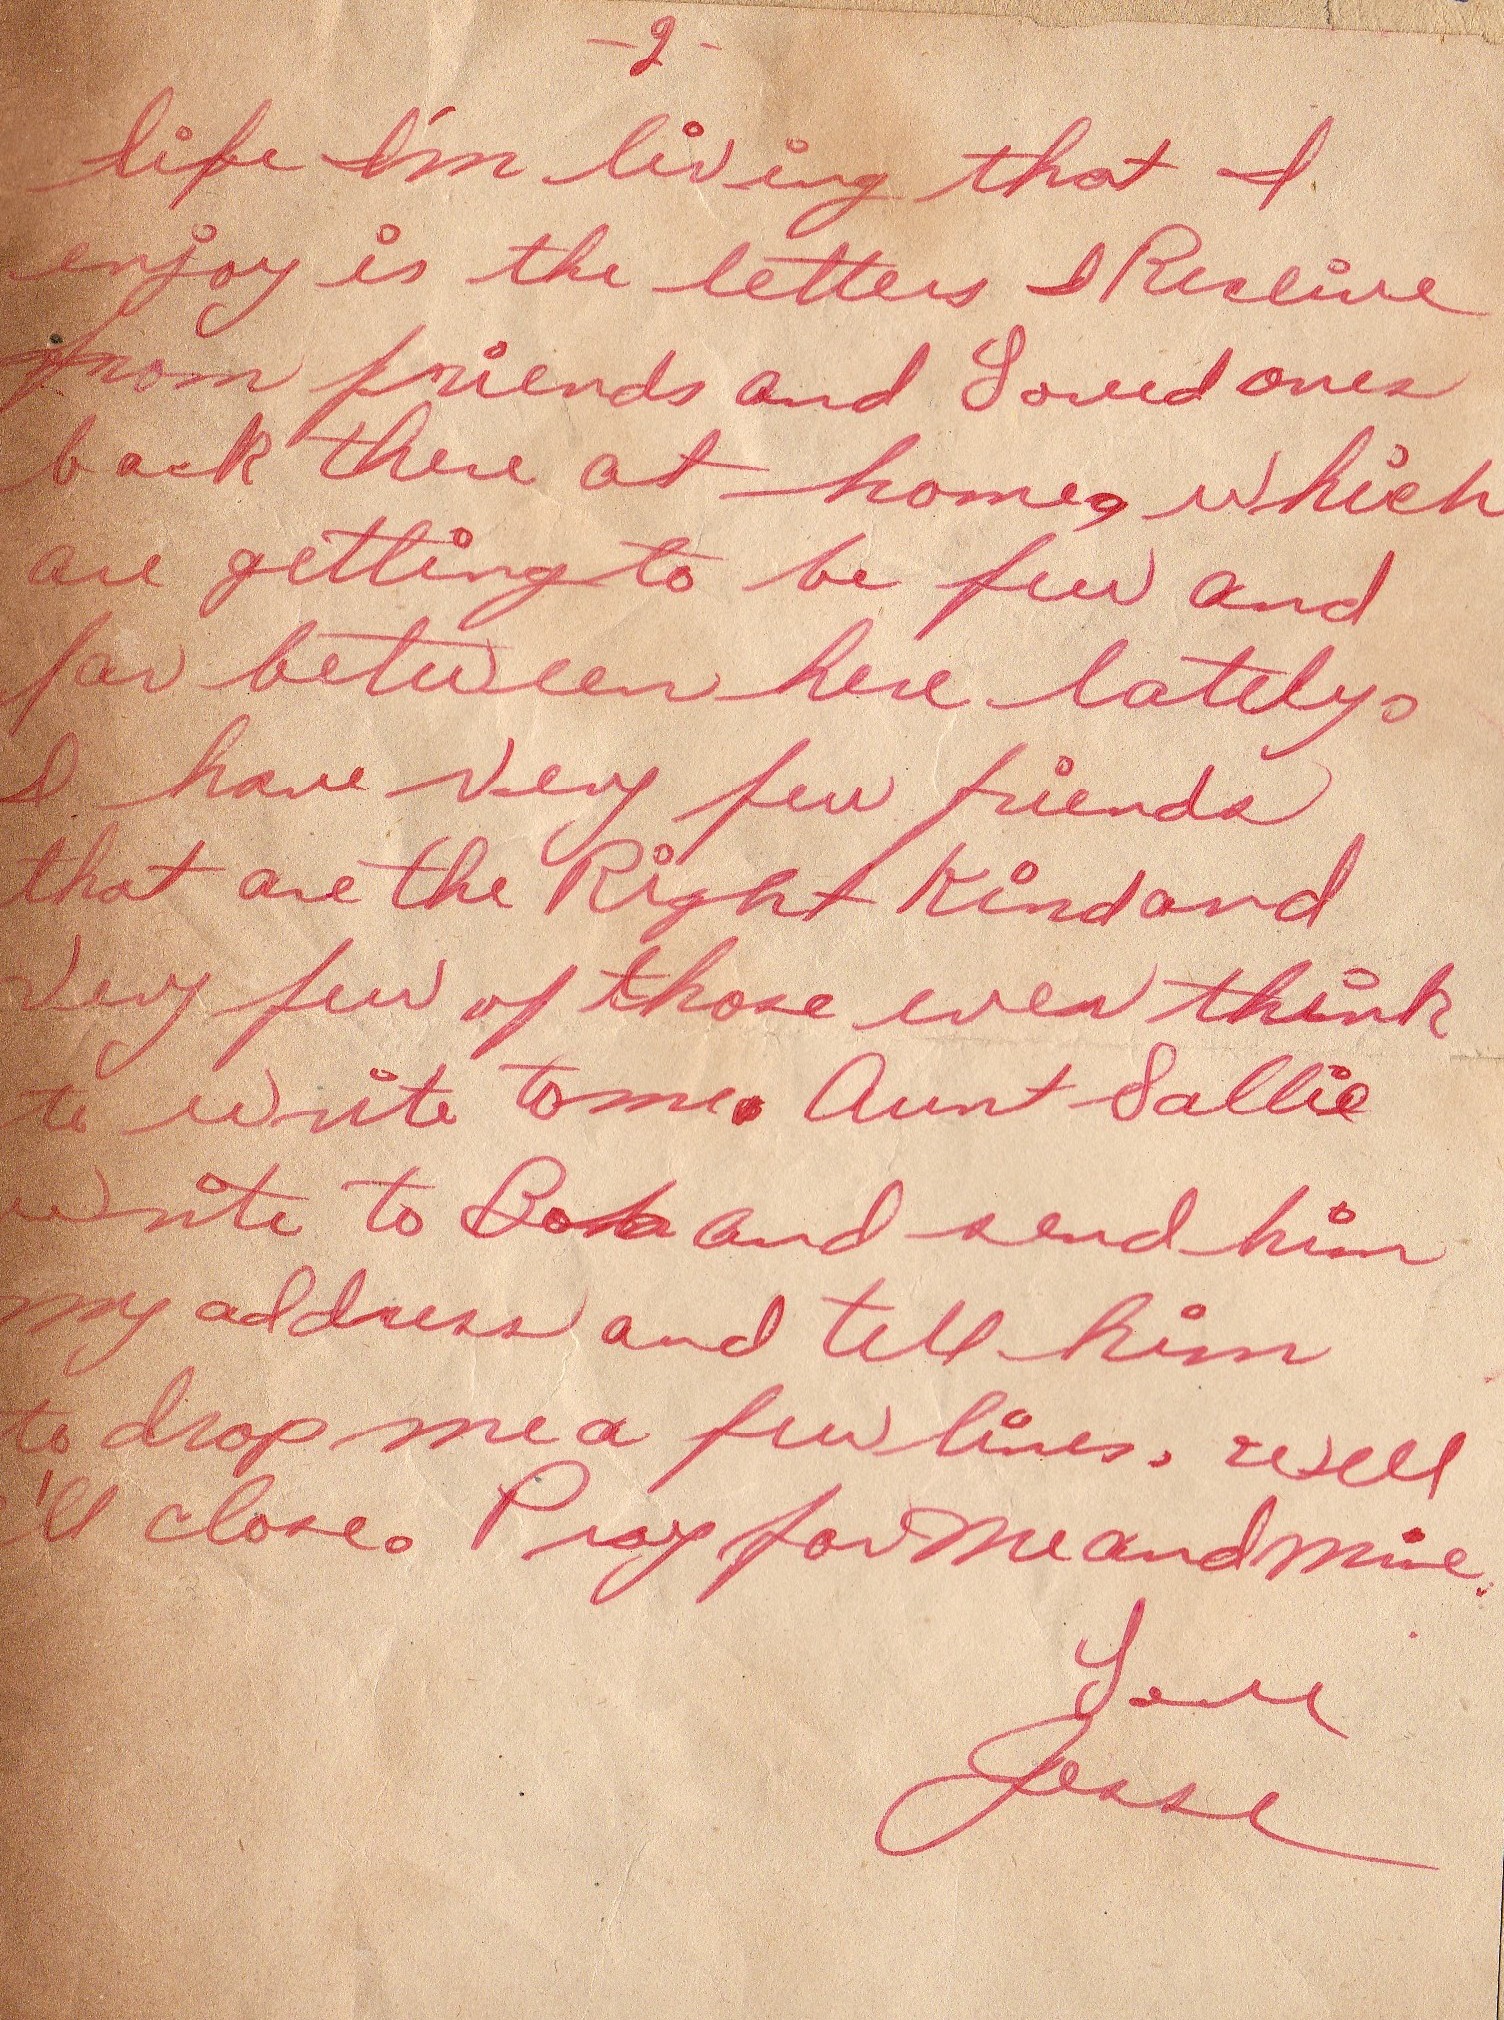 -2-
life I'm living that I
enjoy is the letters I Recive
from friends and Loved ones
back there at home, which
are getting to be few and
far between here lately.
I have very few friends
that are the Right Kind and
Very few of those ever think
to write to me. Aunt Sallie
write to Bob and send him
my address and tell him
to drop me a few lines. well
I'll close. Pray for me and mine.
Love
Jesse